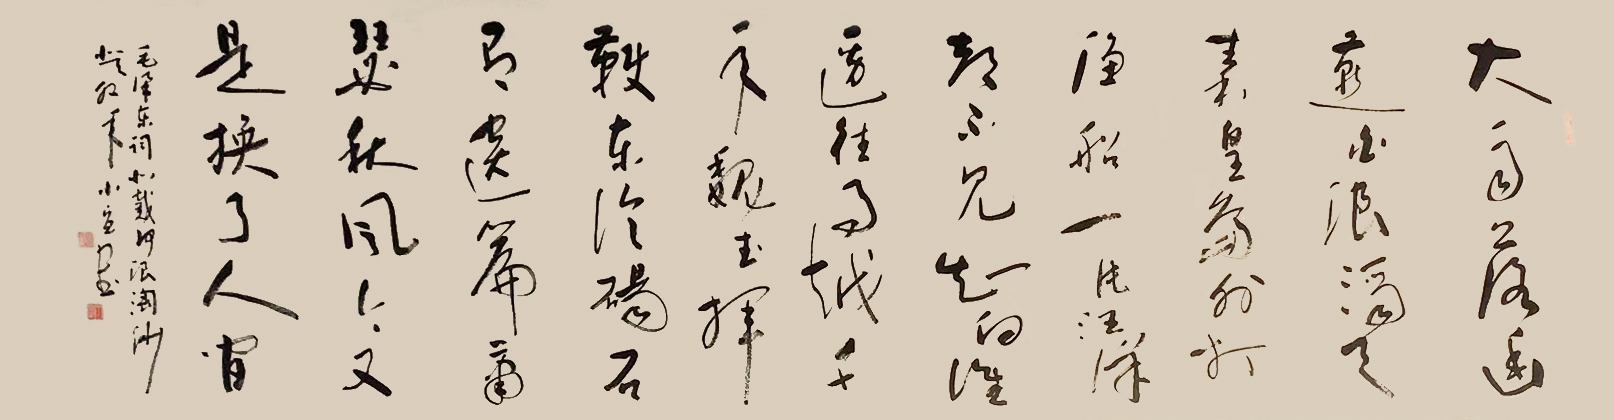 大雨落幽
燕白浪滔天
秦皇岛外打
渔船一片汪洋
都不见知向谁
边往事越千
年魏武挥
鞭东临碣石
有遗篇萧
瑟秋风今又
是换了人间
毛泽东词北戴河浪淘沙
癸卯年小书